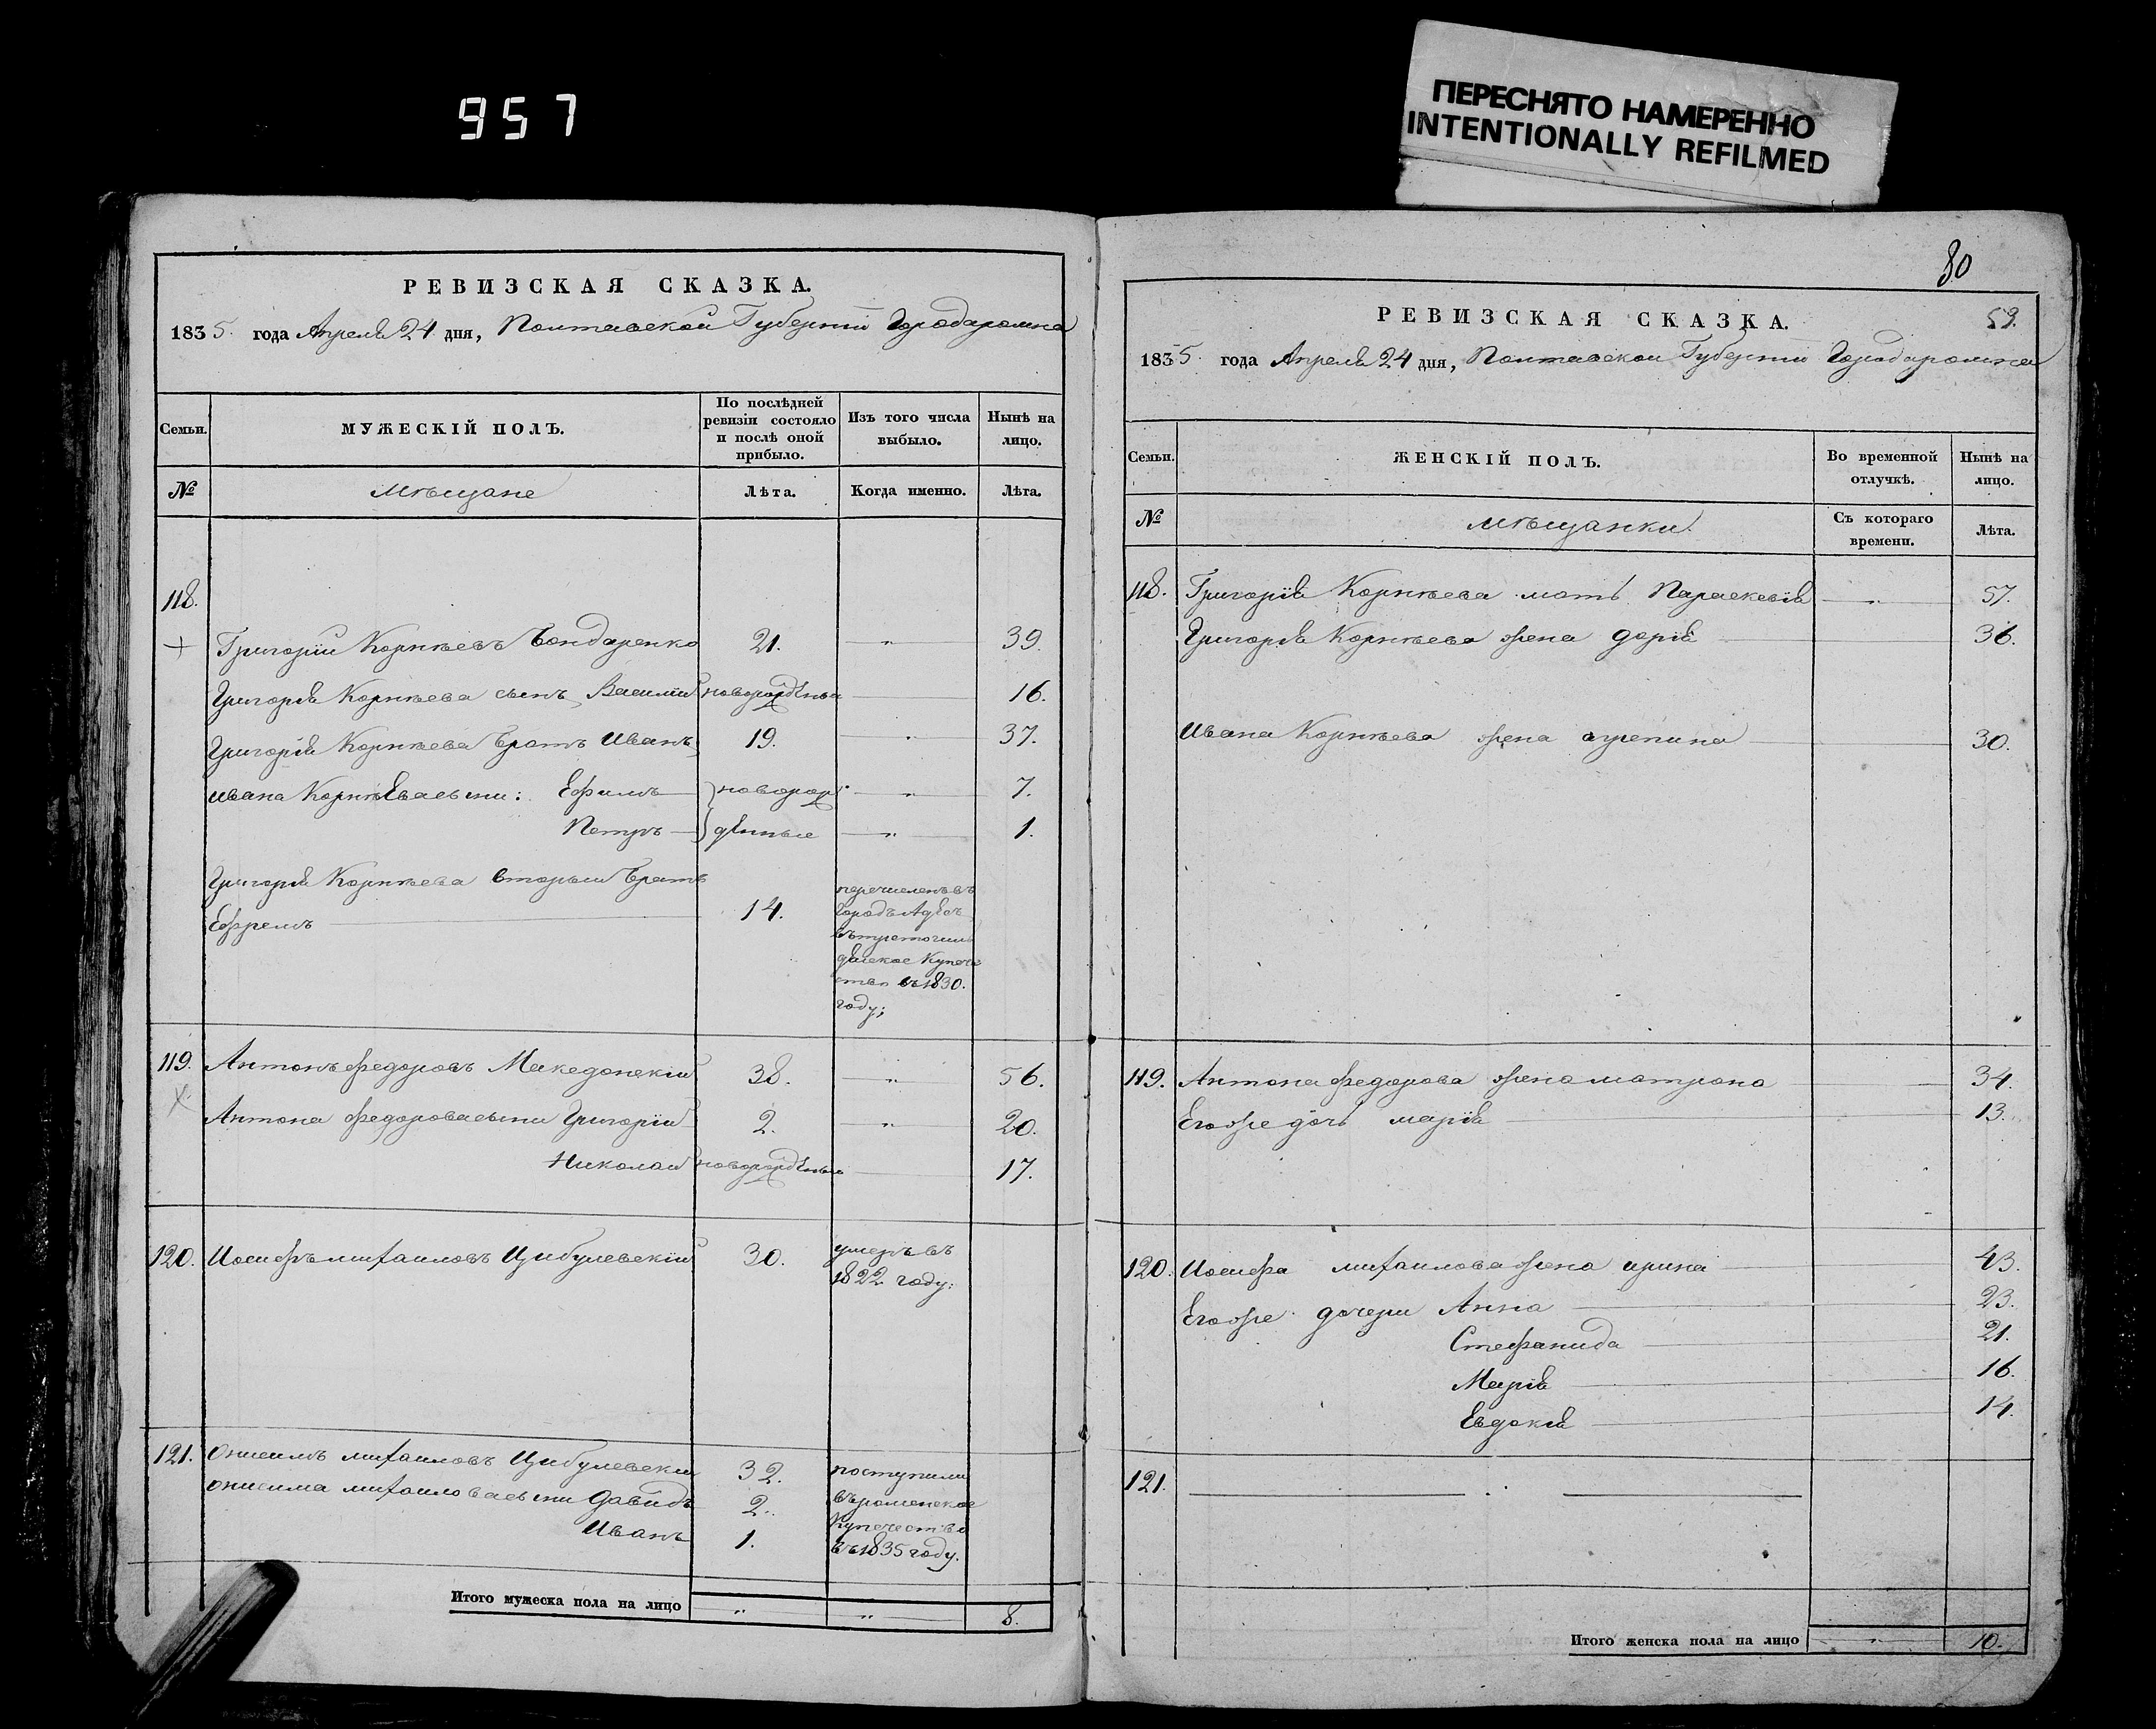 957
ПЕРЕСНЯТО НАМЕРЕННО
INTENTIONALLY REFILMED
РЕВИЗСКАЯ СКАЗКА.
1835. года Апреля 24 дня, Полтавской Губернiи Города Ромна
Семьи.
МУЖЕСКIЙ ПОЛЪ.
По послѣдней ревизiи состояло и послѣ оной прибыло.
Изъ того числа выбыло.
Нынѣ на лицо.
№
Мѣщане
Лѣта.
Когда именно.
Лѣта.
118.
Григорiй Корнѣевъ Бондаренко 21. — „ — 39.
Григорiя Корнѣева сынъ Василiй новорожденый — 16.
Григорiя Корнѣева братъ Иванъ 19. — „ — 37.
Ивана Корнѣева сыни: Ефимъ — новорож — „ — 7.
Петръ — денные — „ — 1.
Григорiя Корнѣева вторый братъ
Ефремъ — 14.
перечисленъ въ
городъ Адесъ
въ третогил
дѣйское Купече
ство въ 1830.
году;
119. Антонъ Федоровъ Македонскiй 38. — „ — 56.
Антона Федорова сыни Григорiй 2. — „ — 20.
Николай новорожденый — 17.
120. Иосифъ Михайловъ Цибулевскiй 30. умеръ въ
1822 году:
121. Онисимъ михайловъ Цибулевскiй 32. поступили
онисима михайлова сыни Давидъ 2. въ роменское
Иванъ 1. Купечество
въ 1835 году.
Итого мужеска пола на лицо „ „ 8.
80
59.
РЕВИЗСКАЯ СКАЗКА.
1835. года Апреля 24 дня, Полтавской Губернiи Города Ромна
Семьи.
ЖЕНСКIЙ ПОЛЪ.
Во временной отлучкѣ.
Нынѣ на лицо.
№
мѣщанки.
Съ котораго времени.
Лѣта.
118. Григорiя Корнѣева мать Параскевiя — „ — 57.
Григорiя Корнѣева жена дарiя — 36.
Ивана Корнѣева жена агрепина — 30.
119. Антона Федорова жена матрона — 34.
Его же дочь марiя — 13.
120. Иосифа михайлова жена ирина — 43.
Его же дочери Анна — 23.
Стефанида — 21.
Марiя — 16.
Евдокiя — 14.
121.
Итого женска пола на лицо „ 10.